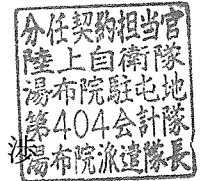 分任契約担当官
陸上自衛隊
湯布院駐屯地
第404会計隊
湯布院派遣隊長
渉